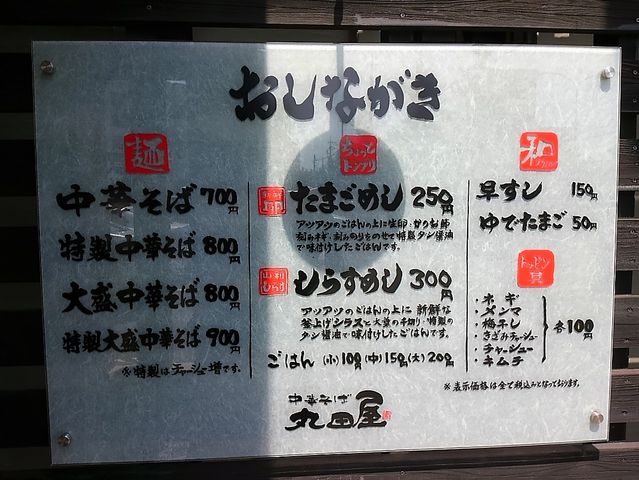 おしながき
麺
中華そば 700円
特製中華そば 800円
大盛中華そば 800円
特製大盛中華そば 900円
※特製はチャーシュー増です。
ちょっと
トンブリ
たまごめし 250円
アツアツのごはんの上に生卵・かつお節
刻みネギ・刻みのりをのせて特製タレ醤油
で味付けしたごはんです。
しらすめし 300円
アツアツのごはんの上に新鮮な
釜上げシラスと大葉の千切り・特製の
タレ醤油で味付けしたごはんです。
ごはん (小)100円(中)150円(大)200円
中華そば
丸田屋
和
早すし 150円
ゆでたまご 50円
トッピング
・ネギ
・メンマ
・梅干し
・きざみチャーシュー
・チャーシュー
・キムチ
各100円
※表示価格は全て税込みとなっております。